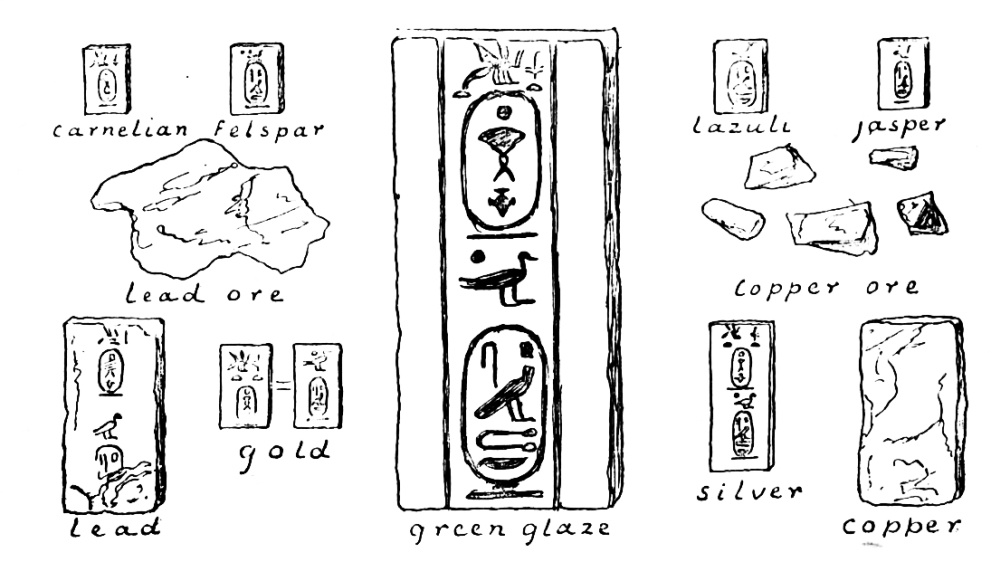 carnelian felspar
lazuli jasper
lead ore
copper ore
gold
silver
lead
green glaze
copper